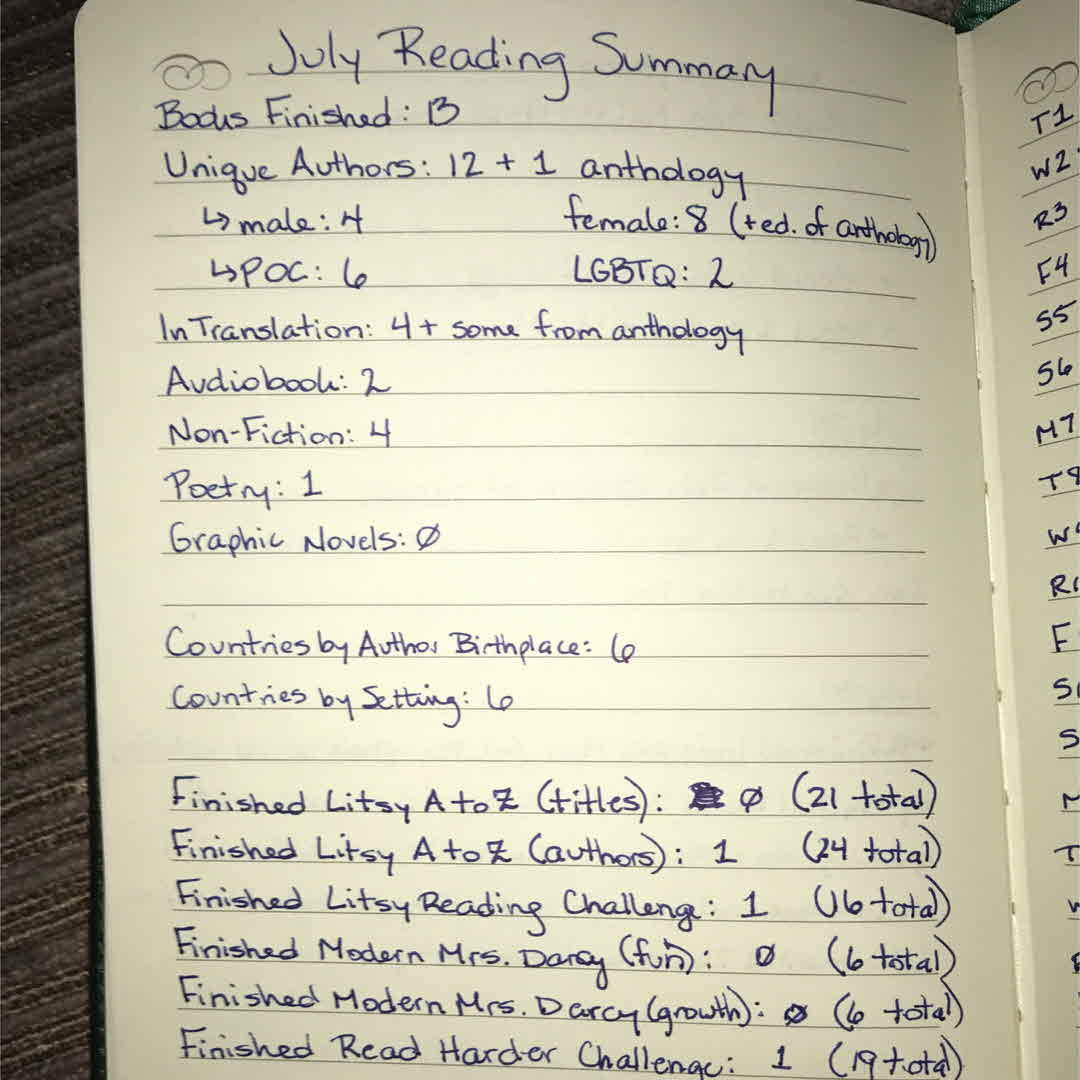 July Reading Summary
Books Finished: 13
Unique Authors: 12 + 1 anthology
↳ male: 4 female: 8 (+ed. of anthology)
↳ POC: 6 LGBTQ: 2
In Translation: 4 + some from anthology
Audiobook: 2
Non-Fiction: 4
Poetry: 1
Graphic Novels: Ø
Countries by Author Birthplace: 6
Countries by Setting: 6
Finished Litsy A to Z (titles): Ø (21 total)
Finished Litsy A to Z (authors): 1 (24 total)
Finished Litsy Reading Challenge: 1 (16 total)
Finished Modern Mrs. Darcy (fun): Ø (6 total)
Finished Modern Mrs. Darcy (growth): Ø (6 total)
Finished Read Harder Challenge: 1 (19 total)
T1
W2
R3
F4
S5
S6
M7
T8
W
R
F
S
S
M
T
W